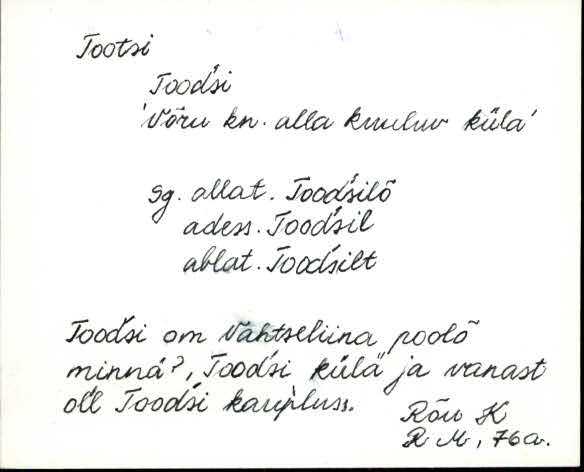 Tootsi
Tood́si
'Võru kn. alla kuuluv küla'
sg. allat. Tood́silõ
adess. Tood́sil
ablat. Tood́silt
Tood́si om Vahtseliina poolõ
minnä?, Tood́si külä ja vanast
oĺl Tood́si kaupluss.
Rõu K
R M, 76a.